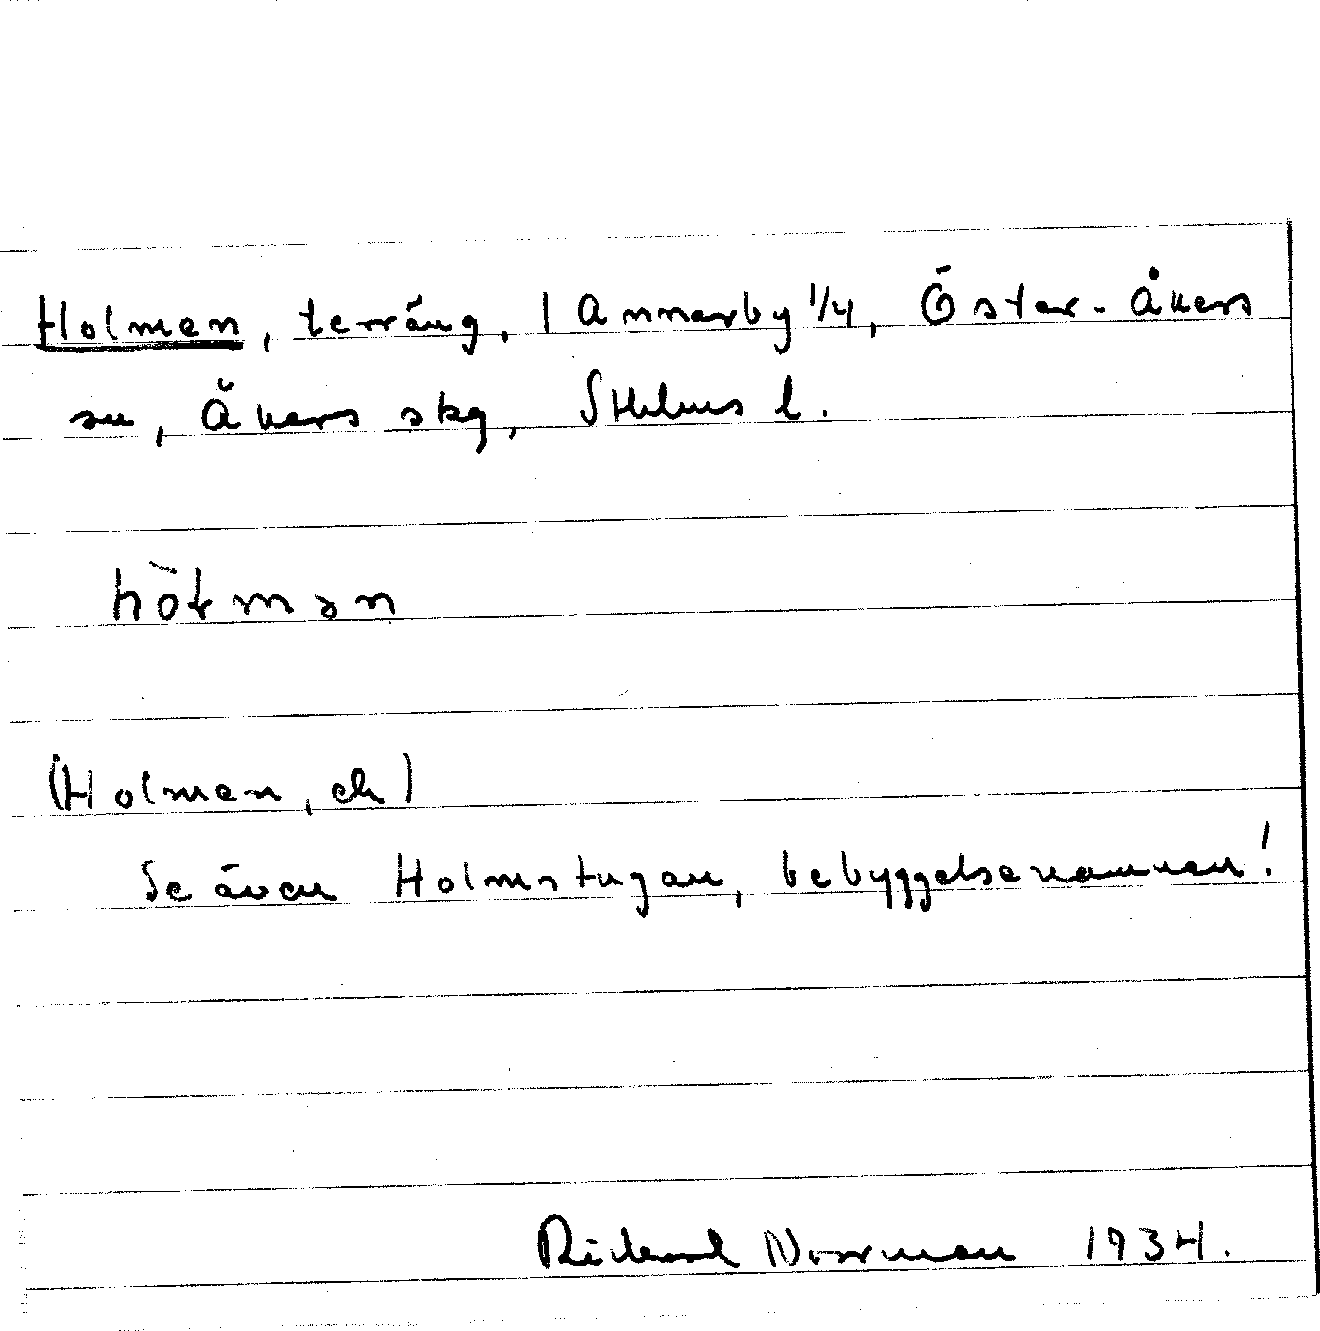 Holmen, terräng, 1 Ammarby 1/4, Öster-Åkers
sn, Åkers skg, Sthlms l.
hòłmən
(Holmen, ek)
Se även Holmstugan, bebyggelsenamnen!
Rickard Norrman 1934.